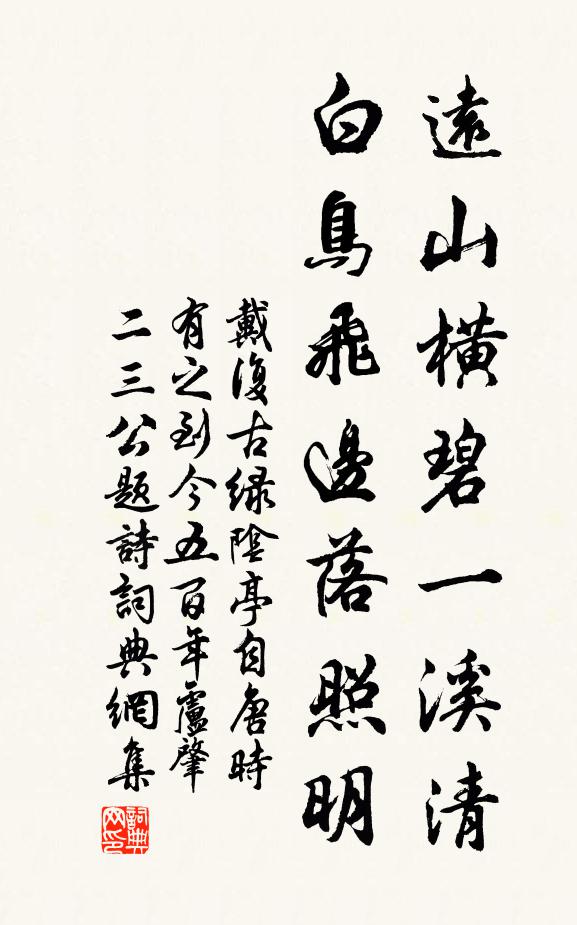 遠山橫碧一溪清
白鳥飛邊落照明
戴復古緑陰亭自唐時
有之到今五百年盧肇
二三公題詩詞典網集
詞典網印